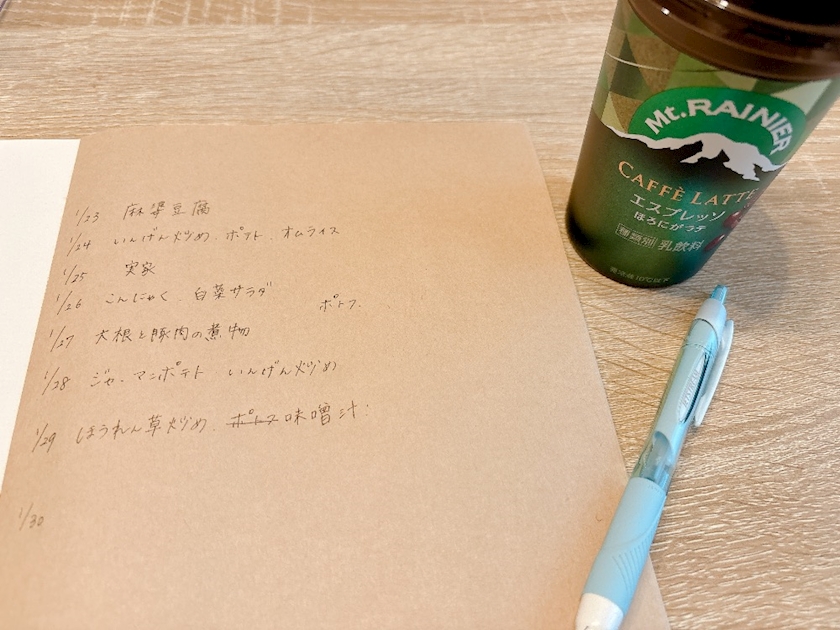 1/23 麻婆豆腐
1/24 いんげん炒め、ポテト、オムライス
1/25 実家
1/26 こんにゃく、白菜サラダ
ポトフ
1/27 大根と豚肉の煮物
1/28 ジャーマンポテト いんげん炒め
1/29 ほうれん草炒め、ポトフ 味噌汁
1/30
Mt. RAINIER
CAFFÈ LATTE
エスプレッソ
ほろにがラテ
種類別 乳飲料
要冷蔵10℃以下